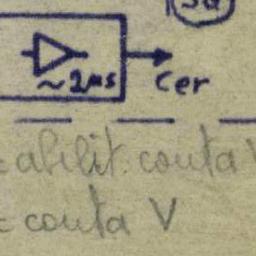 5a
~2μs
Cer
= abilit. conta V
= conta V